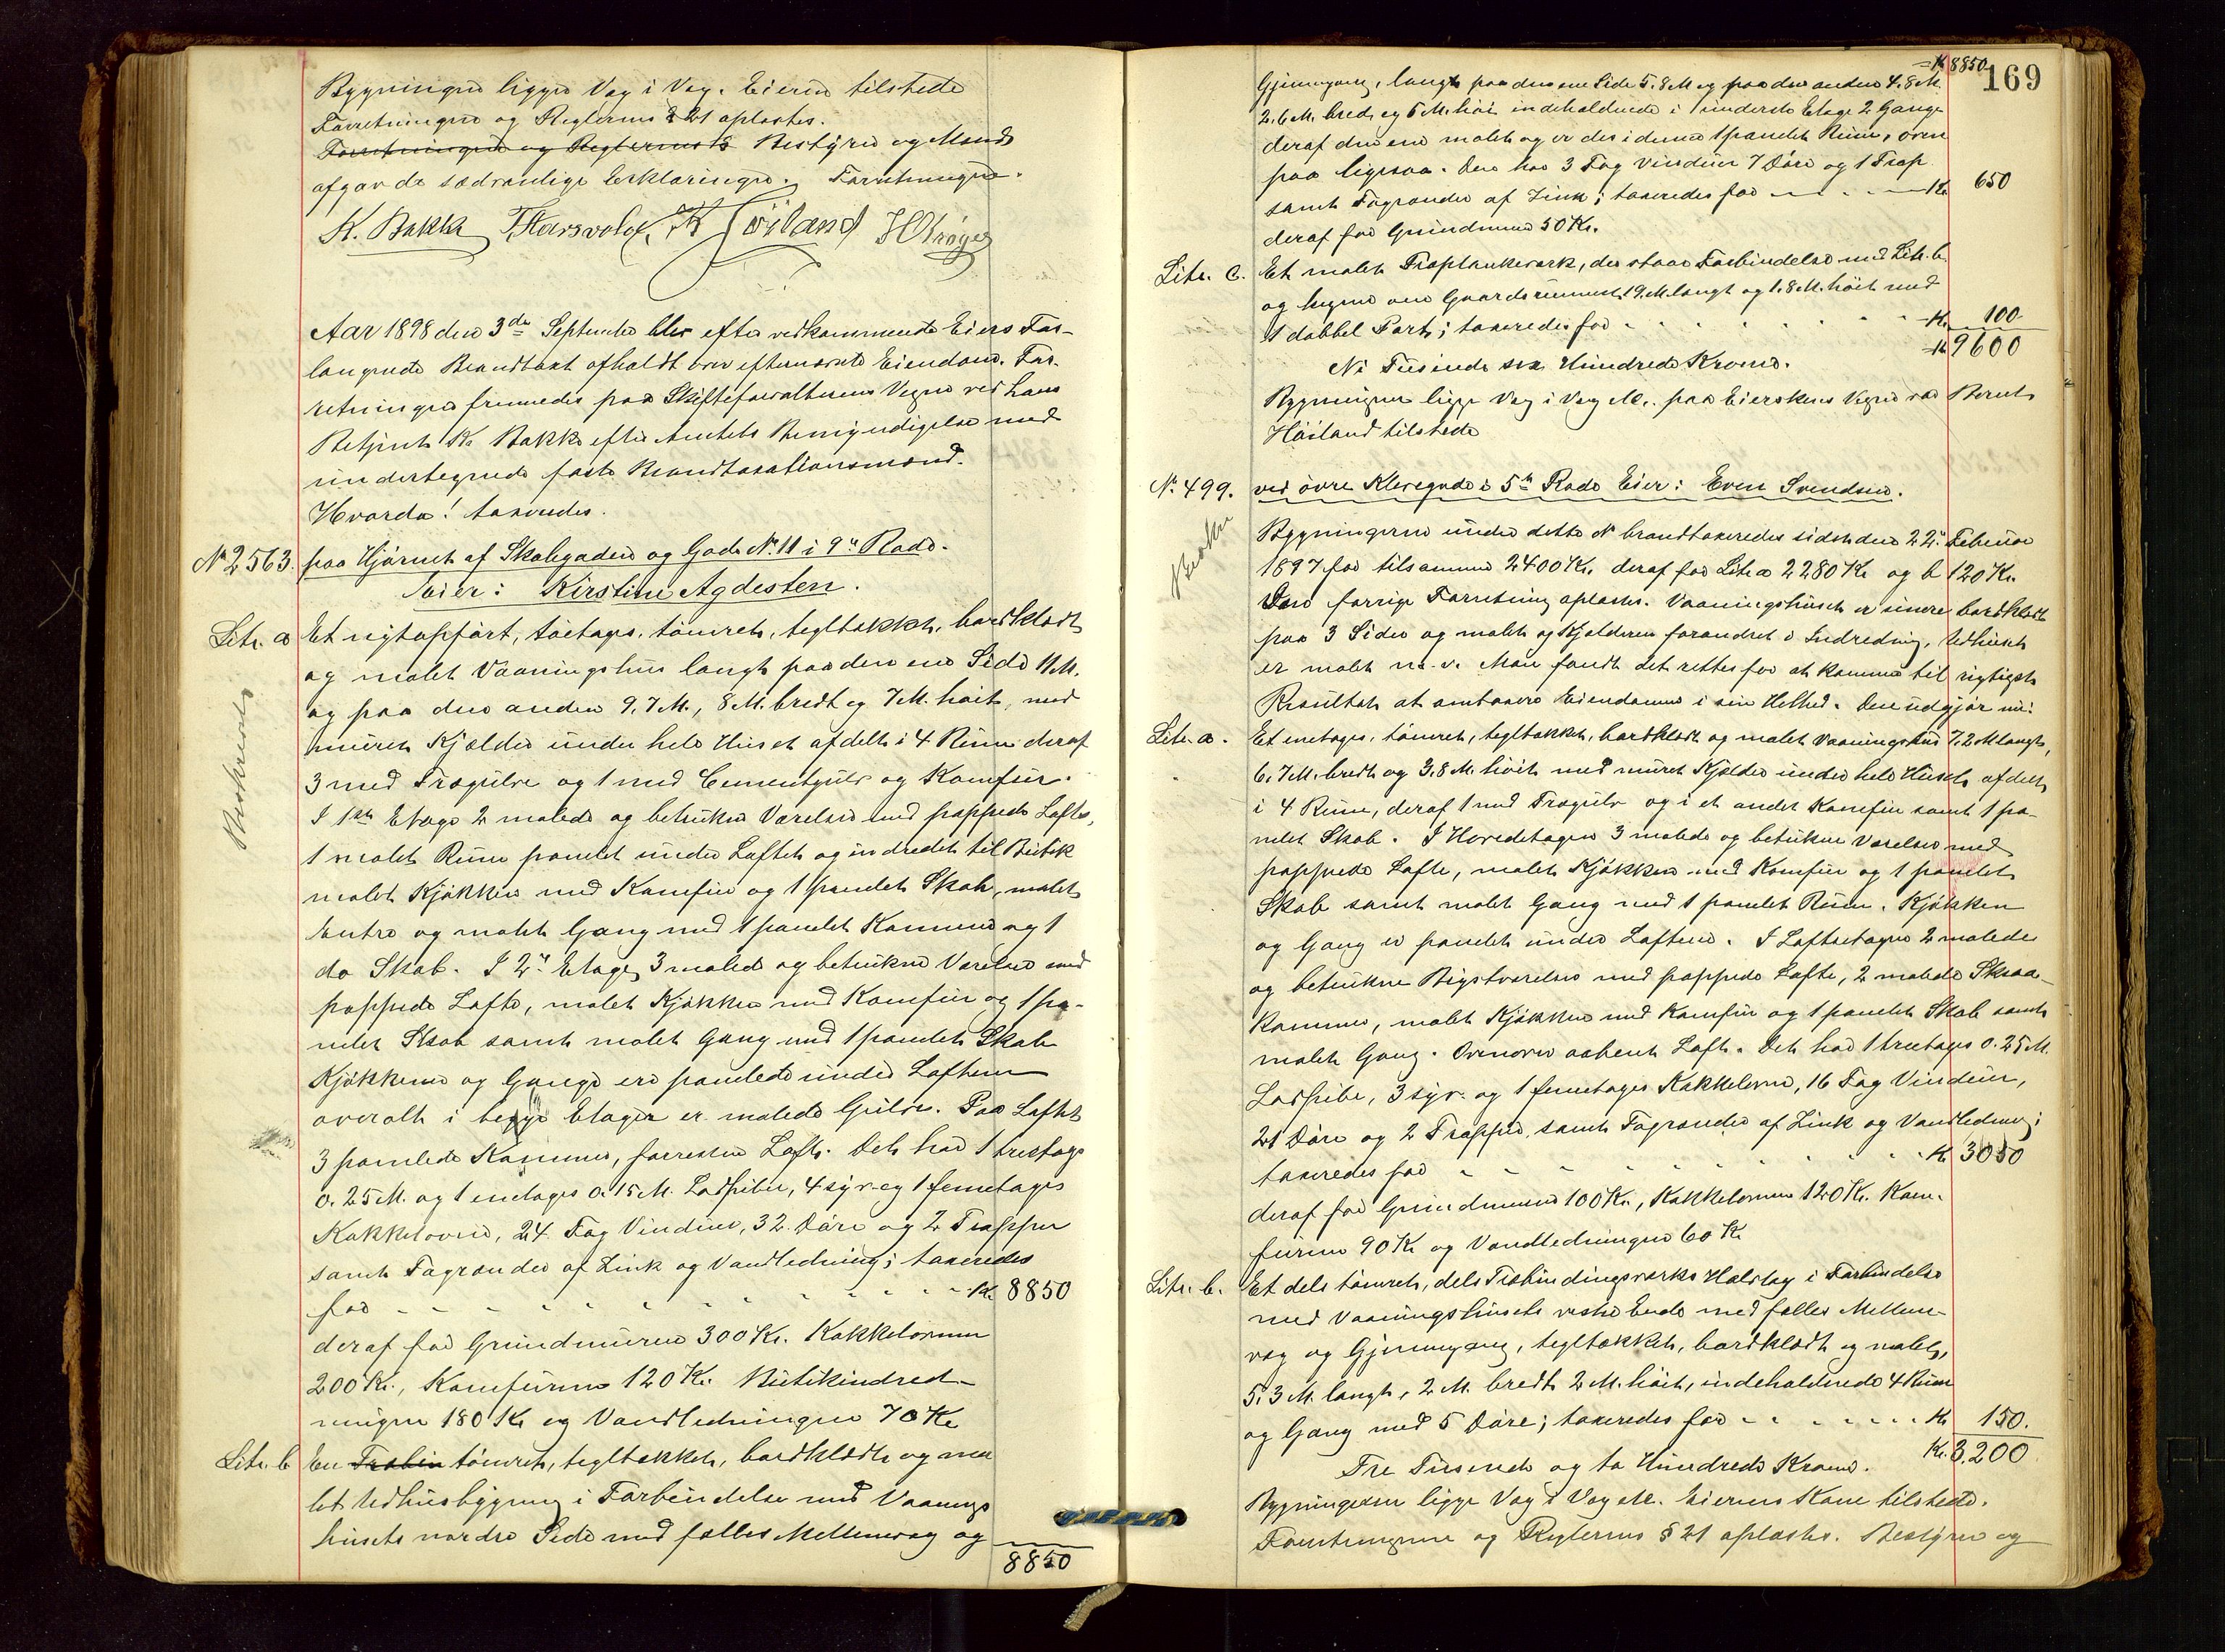 Bygningen ligger Væg i Væg. Eieren tilstede
Forretningen og Reglernes § 21 oplæstes.
Forretningen og Reglernes § Bestyrer og Mænd
afgav de sædvanlige Erklæringer. Forretningen.
K. Bakke T. Harsvold K Höiland H Kröger
Aar 1898 den 3de September blev efter vedkommende Eiers For-
langende Brandtaxt afholdt over efternævnte Eiendom. For-
retningen fremmedes paa Skifteforvalterens Vegne ved hans
Betjent K. Bakke efter Amtets Bemyndigelse med
undertegnede faste Brandtaxationsmænd.
Hvorda! taxeredes.
No 2563. paa Hjørnet af Skolegaden og Gade No. 11 i 9de Rode.
Eier: Kirstine Agdesten.
Litr. a Et nyt opført, toetages, tømret, tegltækket, bordklædt
og malet Vaaningshus langt paa den ene Side 11 M.
og paa den anden 9,7 M., 8 M. bredt og 7 M. høit, med
muret Kjælder under hele Huset afdelt i 4 Rum deraf
3 med Trægulve og 1 med Cementgulv og Komfur.
I 1ste Etage 2 malede og betrukne Værelser med pappede Lofte,
1 malet Rum panelet under Loftet og indredet til Butik
malet Kjøkken med Komfur og 1 panelet Skab, malet
Entre og malet Gang med 1 panelet Kammer og 1
do Skab. I 2den Etage 3 malede og betrukne Værelser med
pappede Lofte, malet Kjøkken med Komfur og 1 pa-
nelet Skab samt malet Gang med 1 panelet Skab
Kjøkkene og Gange ere panelede under Loftene
overalt i begge Etager er malede Gulve. Paa Loftet
3 panelede Kammer, forresten Loft. Det har 1 treetages
0.25 M. og 1 enetages 0.15 M. Ladpiber, 4 syv- og 1 femetages
Kakkelovne, 24 Fag Vinduer, 32 Døre og 2 Trapper
samt Tagrender af Zink og Vandledning; taxeredes
for - - - Kr. 8850
deraf for Grundmuren 300 Kr. Kakkelovnene
200 Kr., Komfurene 120 Kr. Butikindred-
ningen 180 Kr og Vandledningen 70 Kr
Litr. b En Træbin tømret, tegltækket, bordklædt og ma
let Udhusbygning i Forbindelse med Vaanings
husets nordre Side med fælles Mellemvæg og
8850
Beskrevet
169
Kr 8850
Gjennemgang, langt paa den ene Side 5.8 M og paa den anden 4.8 M.
2.6 M. bred, og 5 M. høi indeholdende i underste Etage 2 Gange
deraf den ene malet og er der i denne 1 panelet Rum, oven
paa ligesaa. Den har 3 Fag Vinduer 7 Døre og 1 Trap
samt Tagrender af Zink; taxeredes for - - - Kr 650
deraf for Grundmuren 50 Kr.
Litr. c. Et malet Træplankeværk, der staar Forbindelse med Litr. b
og hegner om Gaardsrummet 19. M. langt og 1.8 M. høit med
1 dobbel Port; taxeredes for - - - Kr. 100
Kr 9600
Ni Tusinde sex Hundrede Kroner.
Bygningen ligge Væg i Væg etc. paa Eierskens Vegne var Bernt
Höiland tilstede
No. 499. ved øvre Klevegade i 5te Rode Eier: Even Svendsen.
Bygningerne under dette No brandtaxeredes sidst den 22de Februar
1897 for tilsammen 2400 Kr. deraf for Litr a 2280 Kr og b 120 Kr.
Den forrige Forretning oplæstes. Vaaningshuset er senere bordklædt
paa 3 Sider og malet og Kjælderen forandret i Indredning, Udhuset
er malet m. v. Man fandt det rettest for at komme til rigtigst
Resultat at omtaxere Eiendommen i sin Helhed. Den udgjør nu:
Litr. a. Et enetages, tømret, tegltækket, bordklædt og malet Vaaningshus 7,2 M langt,
6.7 M. bredt og 3.8 M. høit med muret Kjælder under hele Huset afdelt
i 4 Rum, deraf 1 med Trægulv og i et andet Komfur samt 1 pa-
nelet Skab. I Hovedetagen 3 malede og betrukne Værelser med
pappede Lofte, malet Kjøkken med Komfur og 1 panelet
Skab samt malet Gang med 1 panelet Rum. Kjøkken
og Gang er panelet under Loftene. I Loftsetagen 2 malede
og betrukne Kvistværelser med pappede Lofte, 2 malede Skraa-
kammer, malet Kjøkken med Komfur og 1 panelet Skab samt
malet Gang. Ovenover aabent Loft. Det har 1 treetages 0.25 M.
Ladpibe, 3 syv- og 1 femetages Kakkelovne, 16 Fag Vinduer,
21 Døre og 2 Trapper, samt Tagrender af Zink og Vandledning;
taxeredes for - - - Kr. 3050
deraf for Grundmuren 100 Kr., Kakkelovnene 120 Kr. Kom-
furene 90 Kr og Vandledningen 60 Kr
Litr. b. Et dels tømret, dels Træbindingsværks Halvtag i Forbindelse
med Vaaningshusets vestre Ende med fælles Mellem-
væg og Gjennemgang, tegltækket, bordklædt og malet,
5,3 M. langt, 2 M. bredt 2 M. høit, indeholdende 4 Rum
og Gang med 5 Døre; taxeredes for - - - Kr 150.
Kr. 3,200
Tre Tusende og to Hundrede Kroner.
Bygningerne ligge Væg i Væg etc. Eierens Kone tilstede.
Forretningerne og Reglernes § 21 oplæstes. Bestyrer og